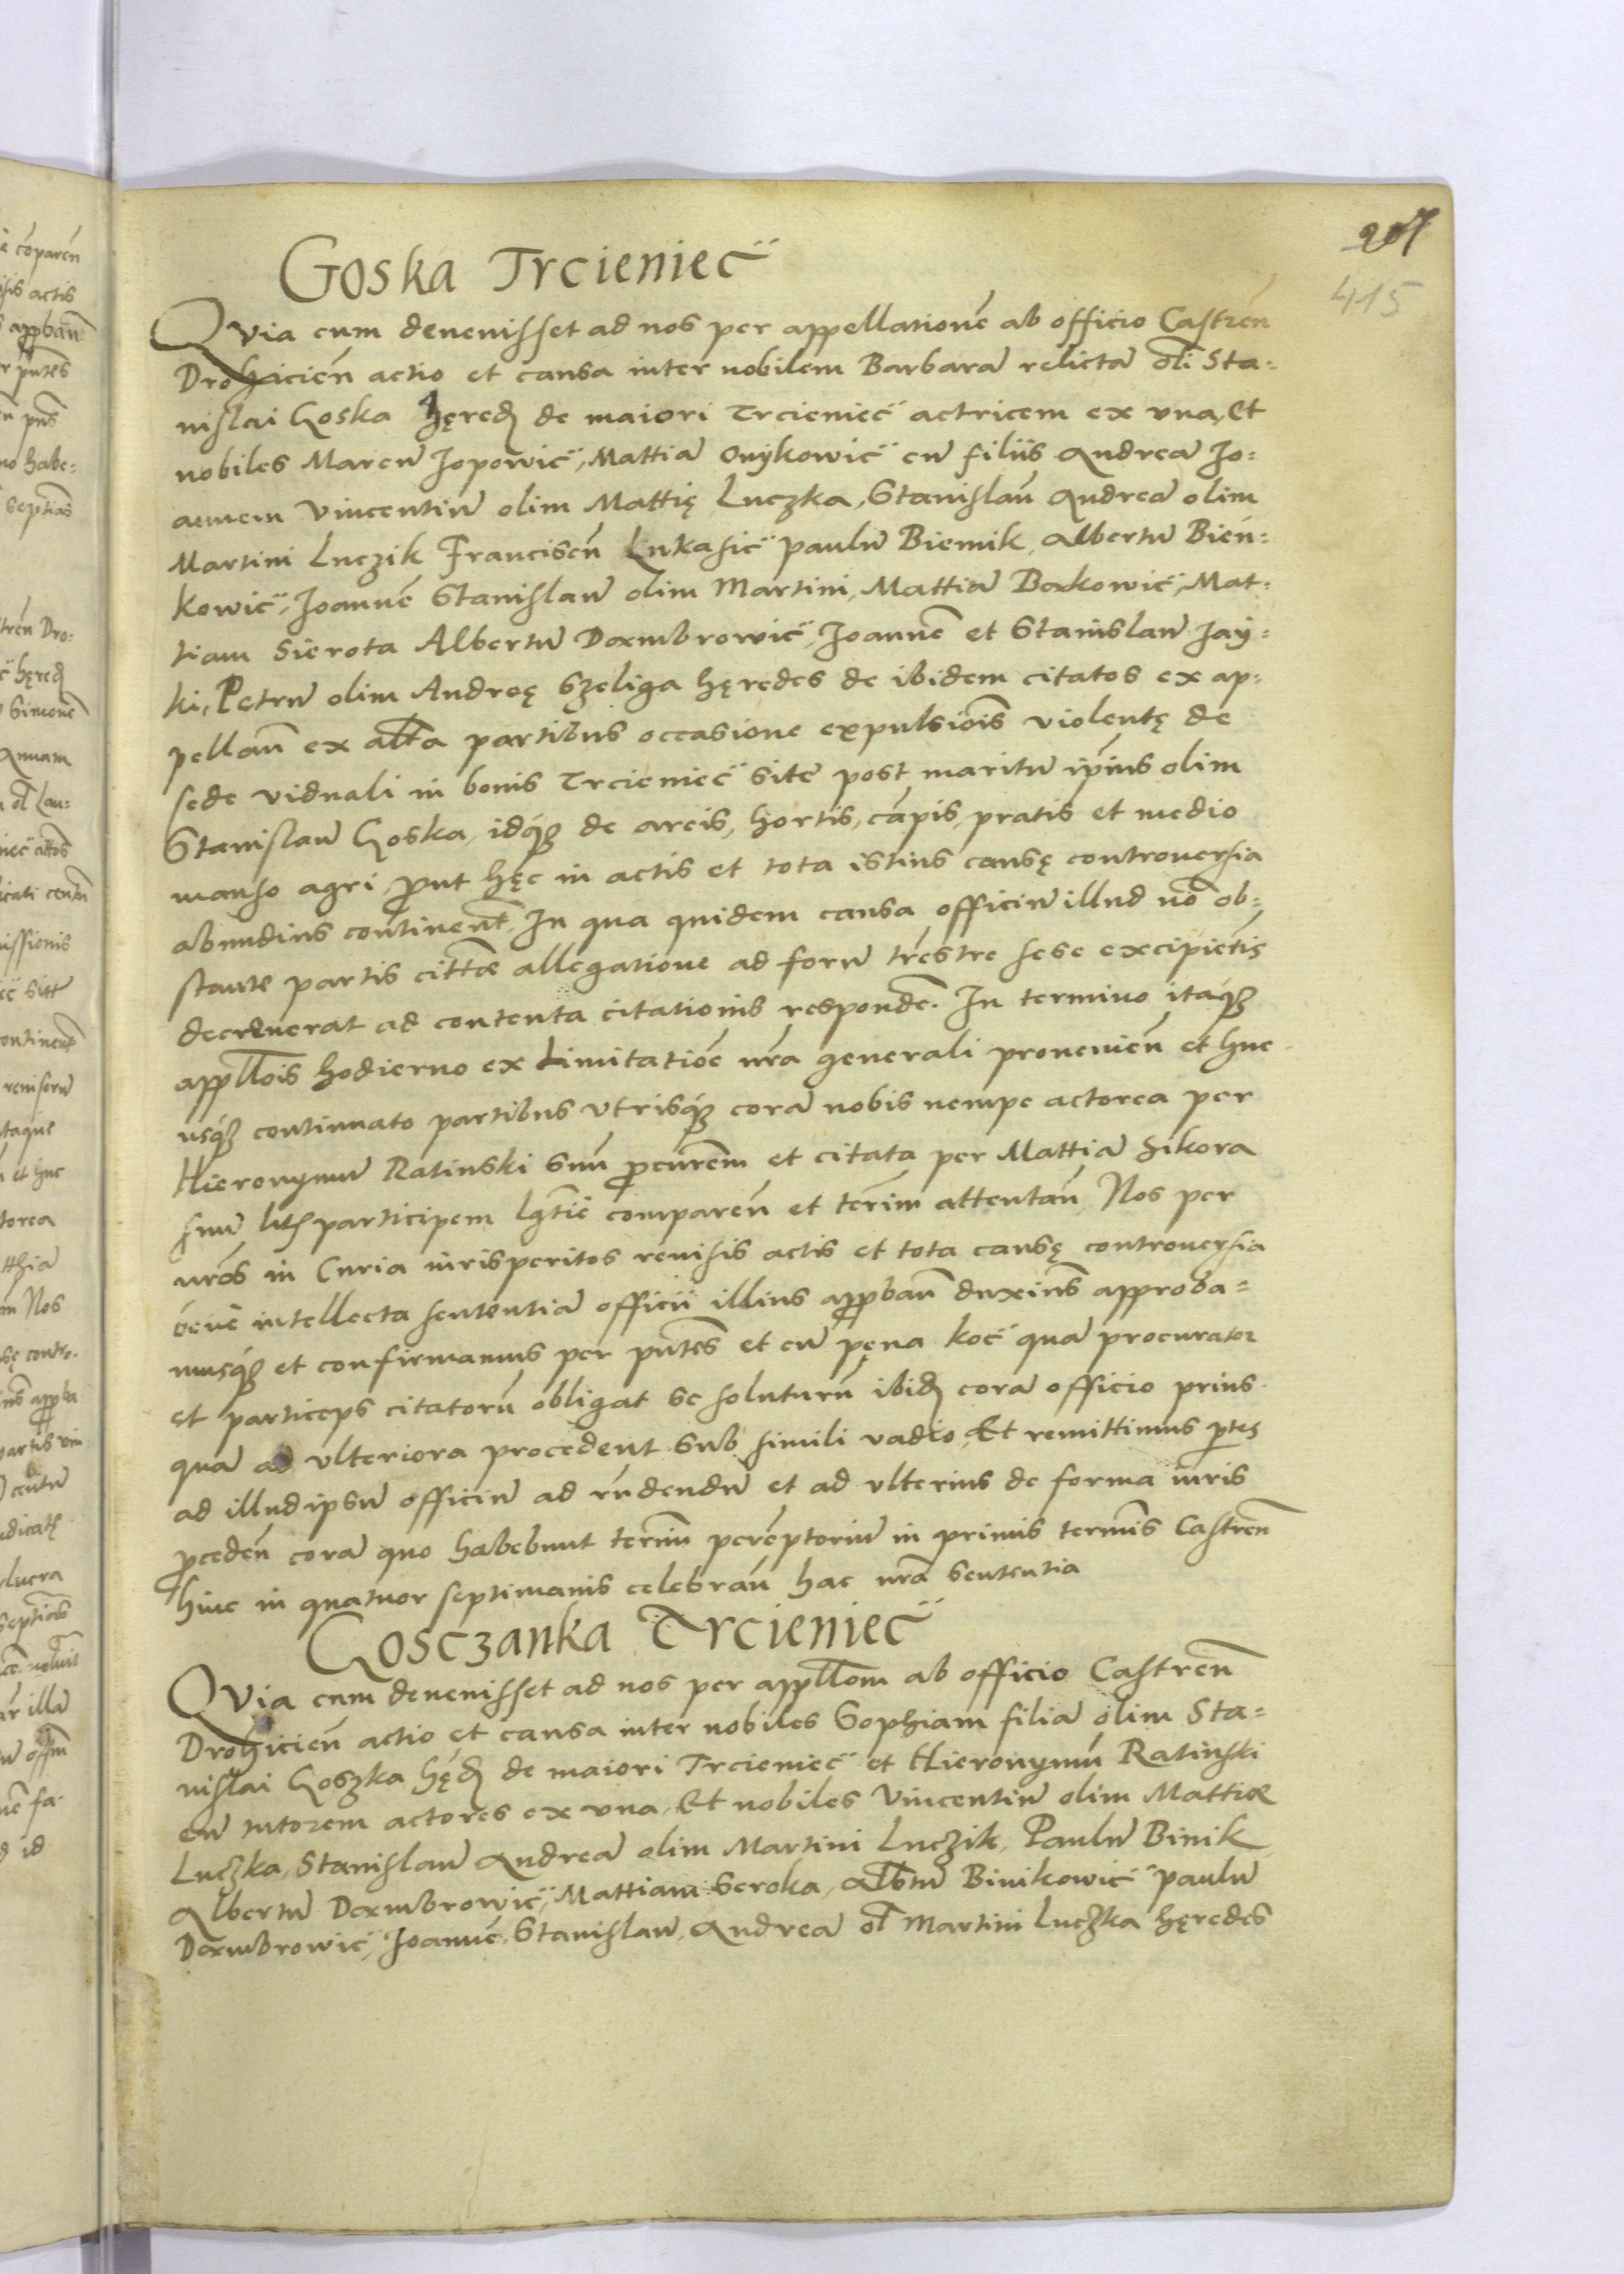 207
415
Goska Trcieniec̈
Qvia cum deuenisset ad nos per appellationē ab officio Castren̄
Drohicien̄ actio et causa inter nobilem Barbarā relictā oli Sta-
nislai Goska hęred de maiori Trcieniec̈ actricem ex vna, Et
nobiles Marcū Jopowic̈, Mattiā Onÿkowic̈ cū filiis Andreā Jo-
annem Vincentiū olim Mattię Luczka, Stanislaū Andreā olim
Martini Luczik Franciscū Lukasic̈ paulū Biemik, Albertū Bien-
kowic̈, Joannē Stanislaū olim Martini, Mattiā Borkowic̈, Mat-
tiam Sierota Albertū Dąmbrowic̈, Joannē et Stanislaū Jaÿ-
ki, Petrū olim Andreę Szeliga hęredes de ibidem citatos ex ap-
pellan̄ ex alt̄a partibus occasione expulsiōis violentę de
sede viduali in bonis Trcieniec̈ site post maritū ip̄ius olim
Stanislaū Goska, idq́ȝ de areis, hortis, cāpis, pratis et medio
manso agri, prout hęc in actis et tota istius causę controuersia
abundius continent̄. In qua quidem causa officiū illud nō ob-
stante partis citt̄æ allegatione ad forū trēstre sese excipiētis
decreuerat ad contenta citationis respondē. In termino itaq́ȝ
appll̄ois hodierno ex Limitatiōe nr̄a generali proueuien̄ et huc
usq́ȝ continuato partibus vtrisq́ȝ corā nobis nempe actorea per
Hieronymū Ratinski suū procurēm et citata per Mattiā Sikora
suū litis participem lg̅tie comparen̄ et term̄ attentan̄, Nos per
nrōs in Curia iurisperitos reuisis actis et tota causę controuersia
bene intellecta sententiā officii illius approban̄ duxim̄s approba-
musq́ȝ et confirmamus per pn̄tes et cū pęna koc̈ quā procurator
et particeps citatorū obligat se soluturū ibid corā officio prius
quā ad vlteriora procedent sub simili vadio, Et remittimus ptes
ad illud ipsū officiū ad rn̄dendū et ad vlterius de forma iuris
proceden̄ corā quo habebunt termū perēptoriū in primis termīs Castren̄
hinc in quatuor septimanis celebran̄ hac nr̄a sententia
Gosczanka Trcieniec̈
Qvia cum deuenisset ad nos per appll̄om ab officio Castren̄
Drohicien̄ actio et causa inter nobiles Sophiam filiā olim Sta-
nislai Goszka hęd de maiori Trcieniec̈ et Hieronymū Ratinski
cū tutorem actores ex vna, Et nobiles Vincentiū olim Mattiæ
Luczka, Stanislaū Andreā olim Martini Luczik, Paulū Binik
Albertū Dąmbrowic̈, Mattiam Seroka, Albtū Binikowic̈ paulū
Dąmbrowic̈, Joannē, Stanislaū, Andreā ol Martini Luczka hęredes